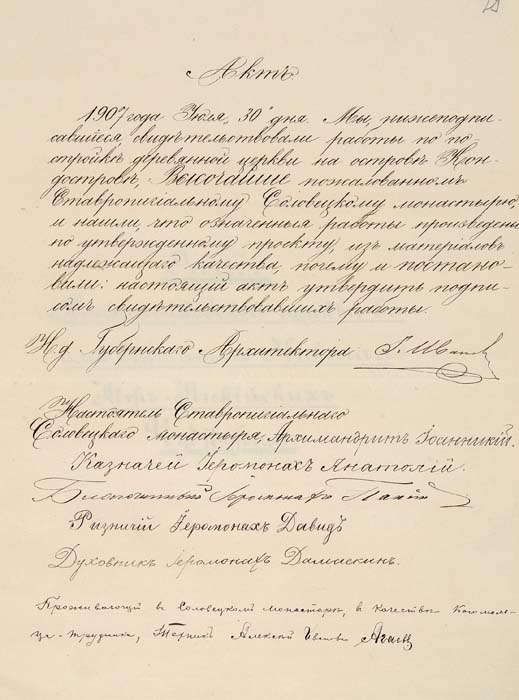 Актъ.
1907 года Июля, 30 дня. Мы, нижеподпи-
савшіеся свидѣтельствовали работы по по-
стройкѣ деревянной церкви на островѣ Кон-
доостровѣ, Высочайше пожалованномъ
Ставропигіальному Соловецкому монастырю,
и нашли, что означенныя работы произведены
по утвержденному проекту, изъ матеріаловъ
надлежащаго качества, почему и постано-
вили: настоящій актъ утвердить подпи-
сомъ свидѣтельствовавшихъ работы.
И. д. Губернскаго Архитектора
Настоятель Ставропигіальнаго
Соловецкаго Монастыря, Архимандритъ Іоанникій.
Казначей Іеромонахъ Анатолій.
Іеромонахъ
Ризничій Іеромонахъ Давидъ
Духовникъ Іеромонахъ Дамаскин.
Проживающій в Соловецком монастырѣ, в качествѣ богомоль-
ца-трудника, Техник Алексѣй